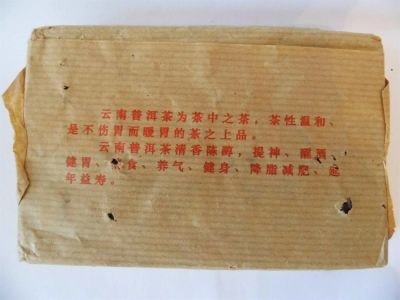 云南普洱茶为茶中之茶，茶性温和、
是不伤胃而暖胃的茶之上品。
云南普洱茶清香陈醇，提神、醒酒、
健胃、食、养气、健身、降脂减肥、延
年益寿。